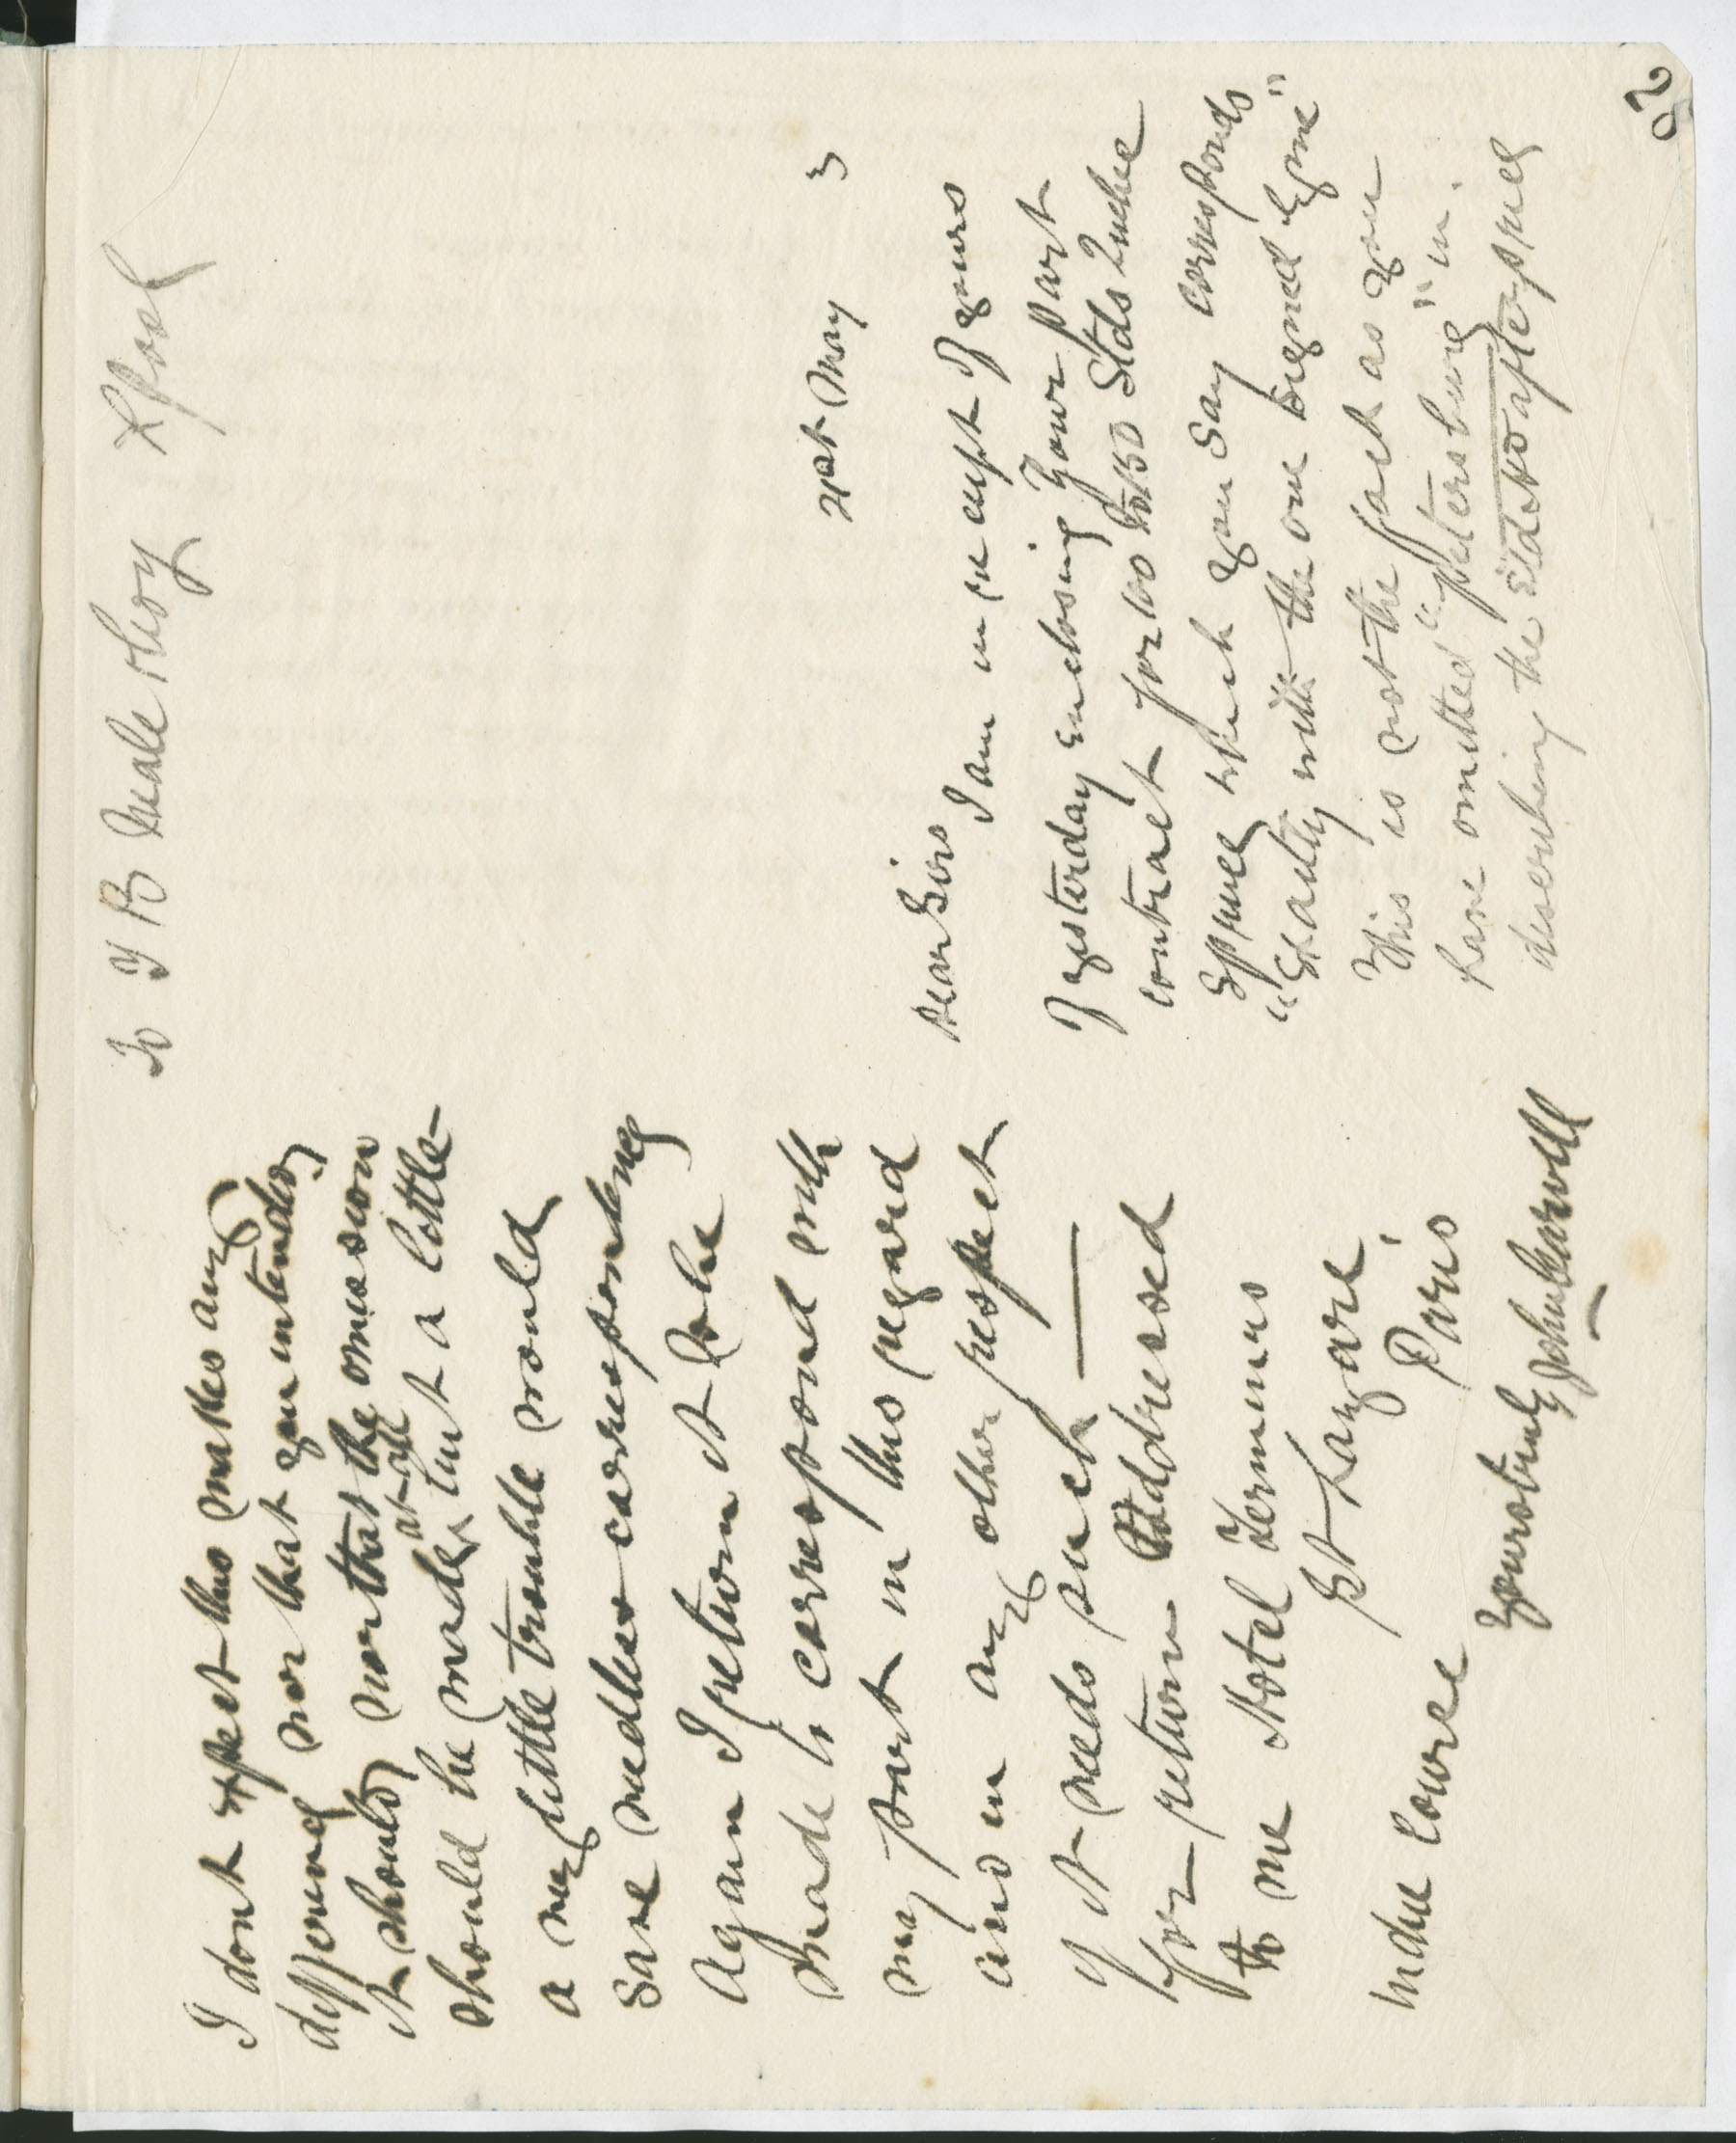 To J B Neale & Coy Lpool
21st May 3
Dear Sirs
I am in receipt of yours
of yesterday enclosing your part
contract for 100 to 150 Stds 2 nche
Spruce which you say corresponds
"Exactly with the one signed by me"
This is not the fact as you
have omitted "Petersburg" in
describing the Std 100 of the spruce
20
I dont expect this makes any
difference nor that you intended
it should nor that the omission
should be made at all but a little
a very little trouble would
save needless correspondence
Again I return it to be
made to correspond with
my part in this regard
and in any other respect
if it needs such
for return addressed
to me Hotel Terminus
St Lazare
Paris
in due course
yours truly
John Carvell